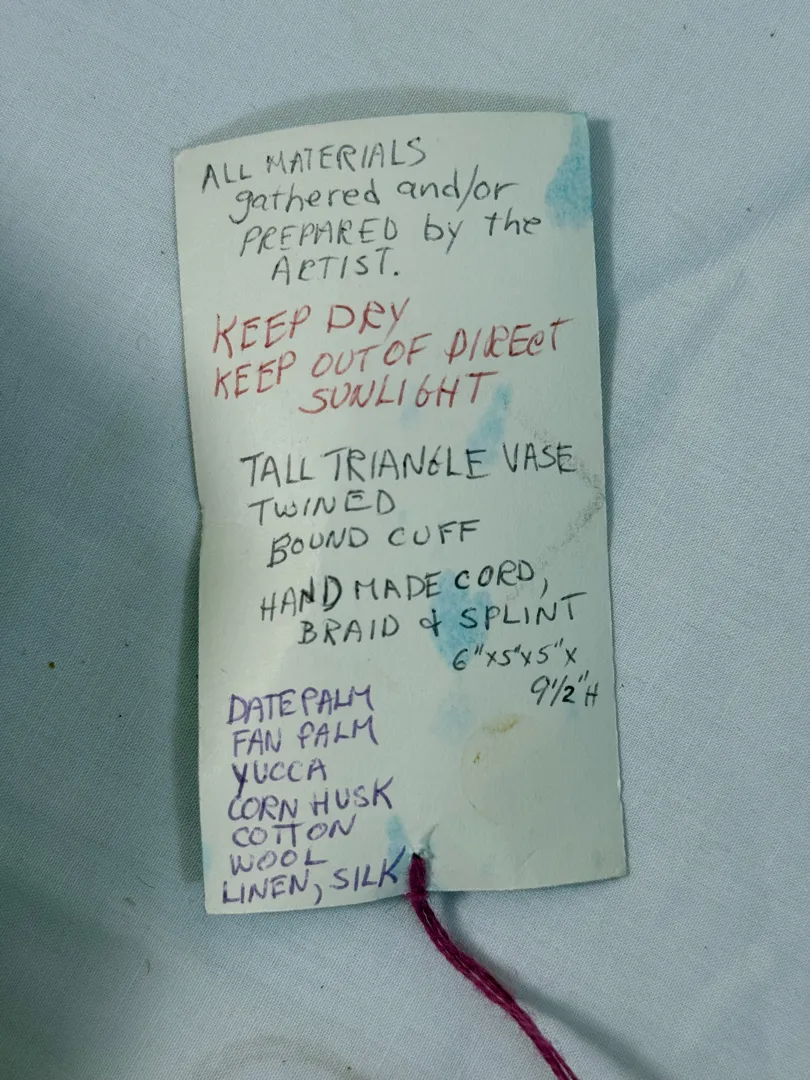 ALL MATERIALS
gathered and/or
PREPARED by the
ARTIST.
KEEP DRY
KEEP OUT OF DIRECT
SUNLIGHT
TALL TRIANGLE VASE
TWINED
BOUND CUFF
HANDMADE CORD,
BRAID & SPLINT
6"x5"x5"x
9½"H
DATE PALM
FAN PALM
YUCCA
CORN HUSK
COTTON
WOOL
LINEN, SILK